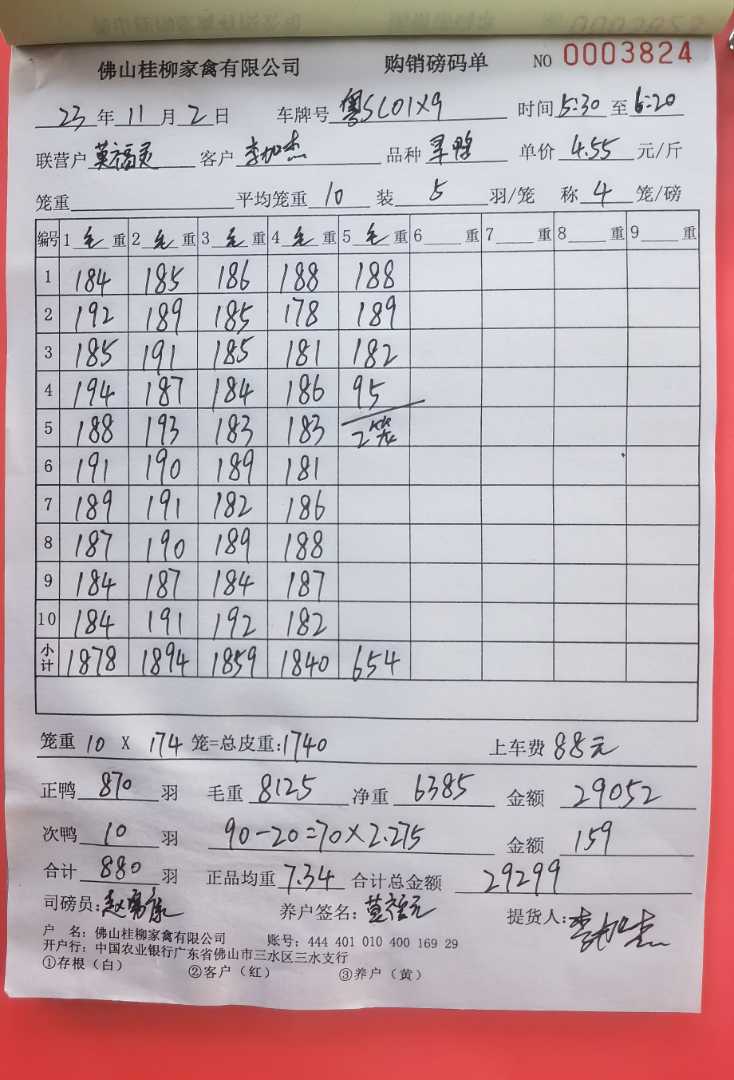 佛山桂柳家禽有限公司 购销磅码单 NO 0003824
23年11月2日 车牌号 粤SL01X9 时间 5:30 至 6:20
联营户 莫福灵 客户 李加杰 品种 单价 4.55 元/斤
笼重 平均笼重 10 装 5 羽/笼 称 4 笼/磅
编号 1 毛 重 2 毛 重 3 毛 重 4 毛 重 5 毛 重 6 重 7 重 8 重 9 重
1 184 185 186 188 188
2 192 189 185 178 189
3 185 191 185 181 182
4 194 187 184 186 95
5 188 193 183 183 2笼
6 191 190 189 181
7 189 191 182 186
8 187 190 189 188
9 184 187 184 187
10 184 191 192 182
小计 1878 1894 1859 1840 654
笼重 10 X 174 笼=总皮重:1740 上车费 88元
正鸭 870 羽 毛重 8125 净重 6385 金额 29052
次鸭 10 羽 90-20=70×2.275 金额 159
合计 880 羽 正品均重 7.34 合计总金额 29299
司磅员: 养户签名: 提货人: 李加杰
户 名: 佛山桂柳家禽有限公司 账号: 444 401 010 400 169 29
开户行: 中国农业银行广东省佛山市三水区三水支行
①存根（白） ②客户（红） ③养户（黄）